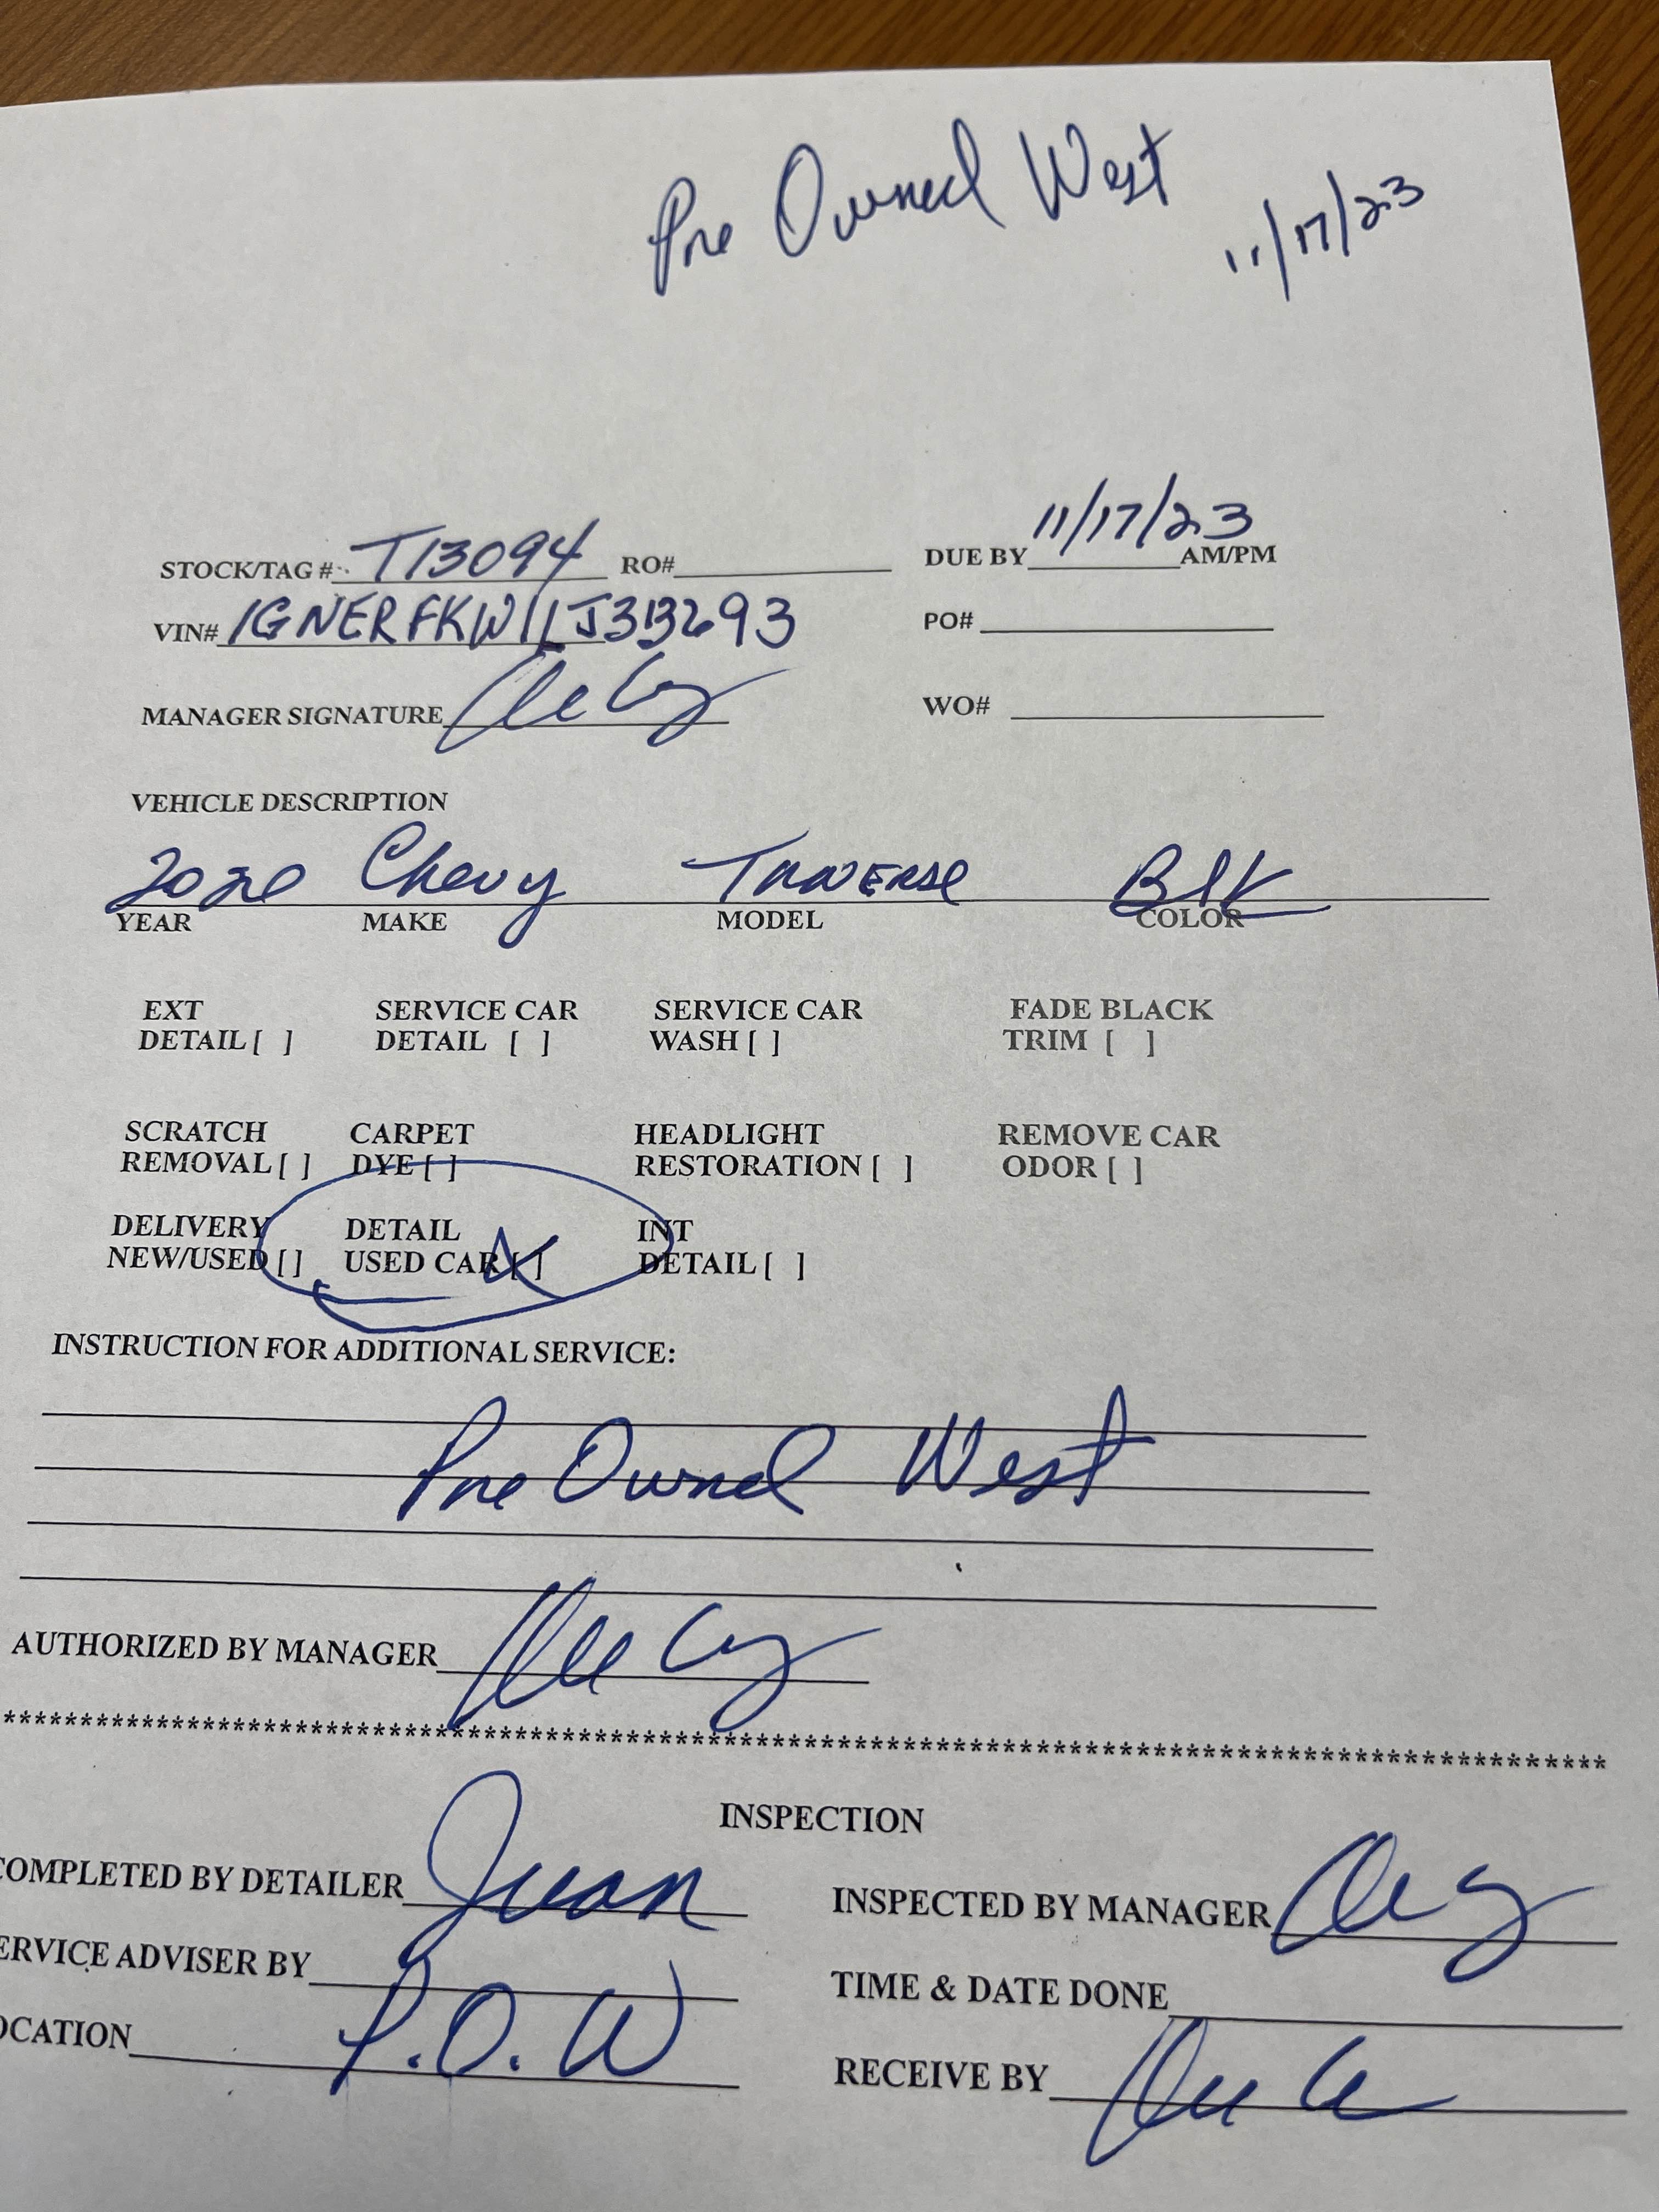 Pre Owned West 11/17/23
STOCK/TAG #: T13094 RO# DUE BY 11/17/23 AM/PM
VIN# PO#
MANAGER SIGNATURE WO#
VEHICLE DESCRIPTION
2020 Chevy TRAVERSE Blk
YEAR MAKE MODEL COLOR
EXT SERVICE CAR SERVICE CAR FADE BLACK
DETAIL [ ] DETAIL [ ] WASH [ ] TRIM [ ]
SCRATCH CARPET HEADLIGHT REMOVE CAR
REMOVAL [ ] DYE [ ] RESTORATION [ ] ODOR [ ]
DELIVERY DETAIL INT
NEW/USED [ ] USED CAR [ ] DETAIL [ ]
INSTRUCTION FOR ADDITIONAL SERVICE:
Pre Owned West
AUTHORIZED BY MANAGER
INSPECTION
COMPLETED BY DETAILER Juan INSPECTED BY MANAGER
SERVICE ADVISER BY TIME & DATE DONE
LOCATION P.O.W RECEIVE BY